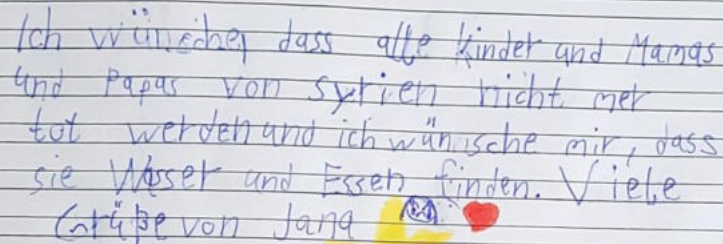 Ich wünsche, dass alle Kinder und Mamas
und Papas von Syrien nicht mer
tot werden und ich wünsche mir, dass
sie Wasser und Essen finden. Viele
Grüße von Jana